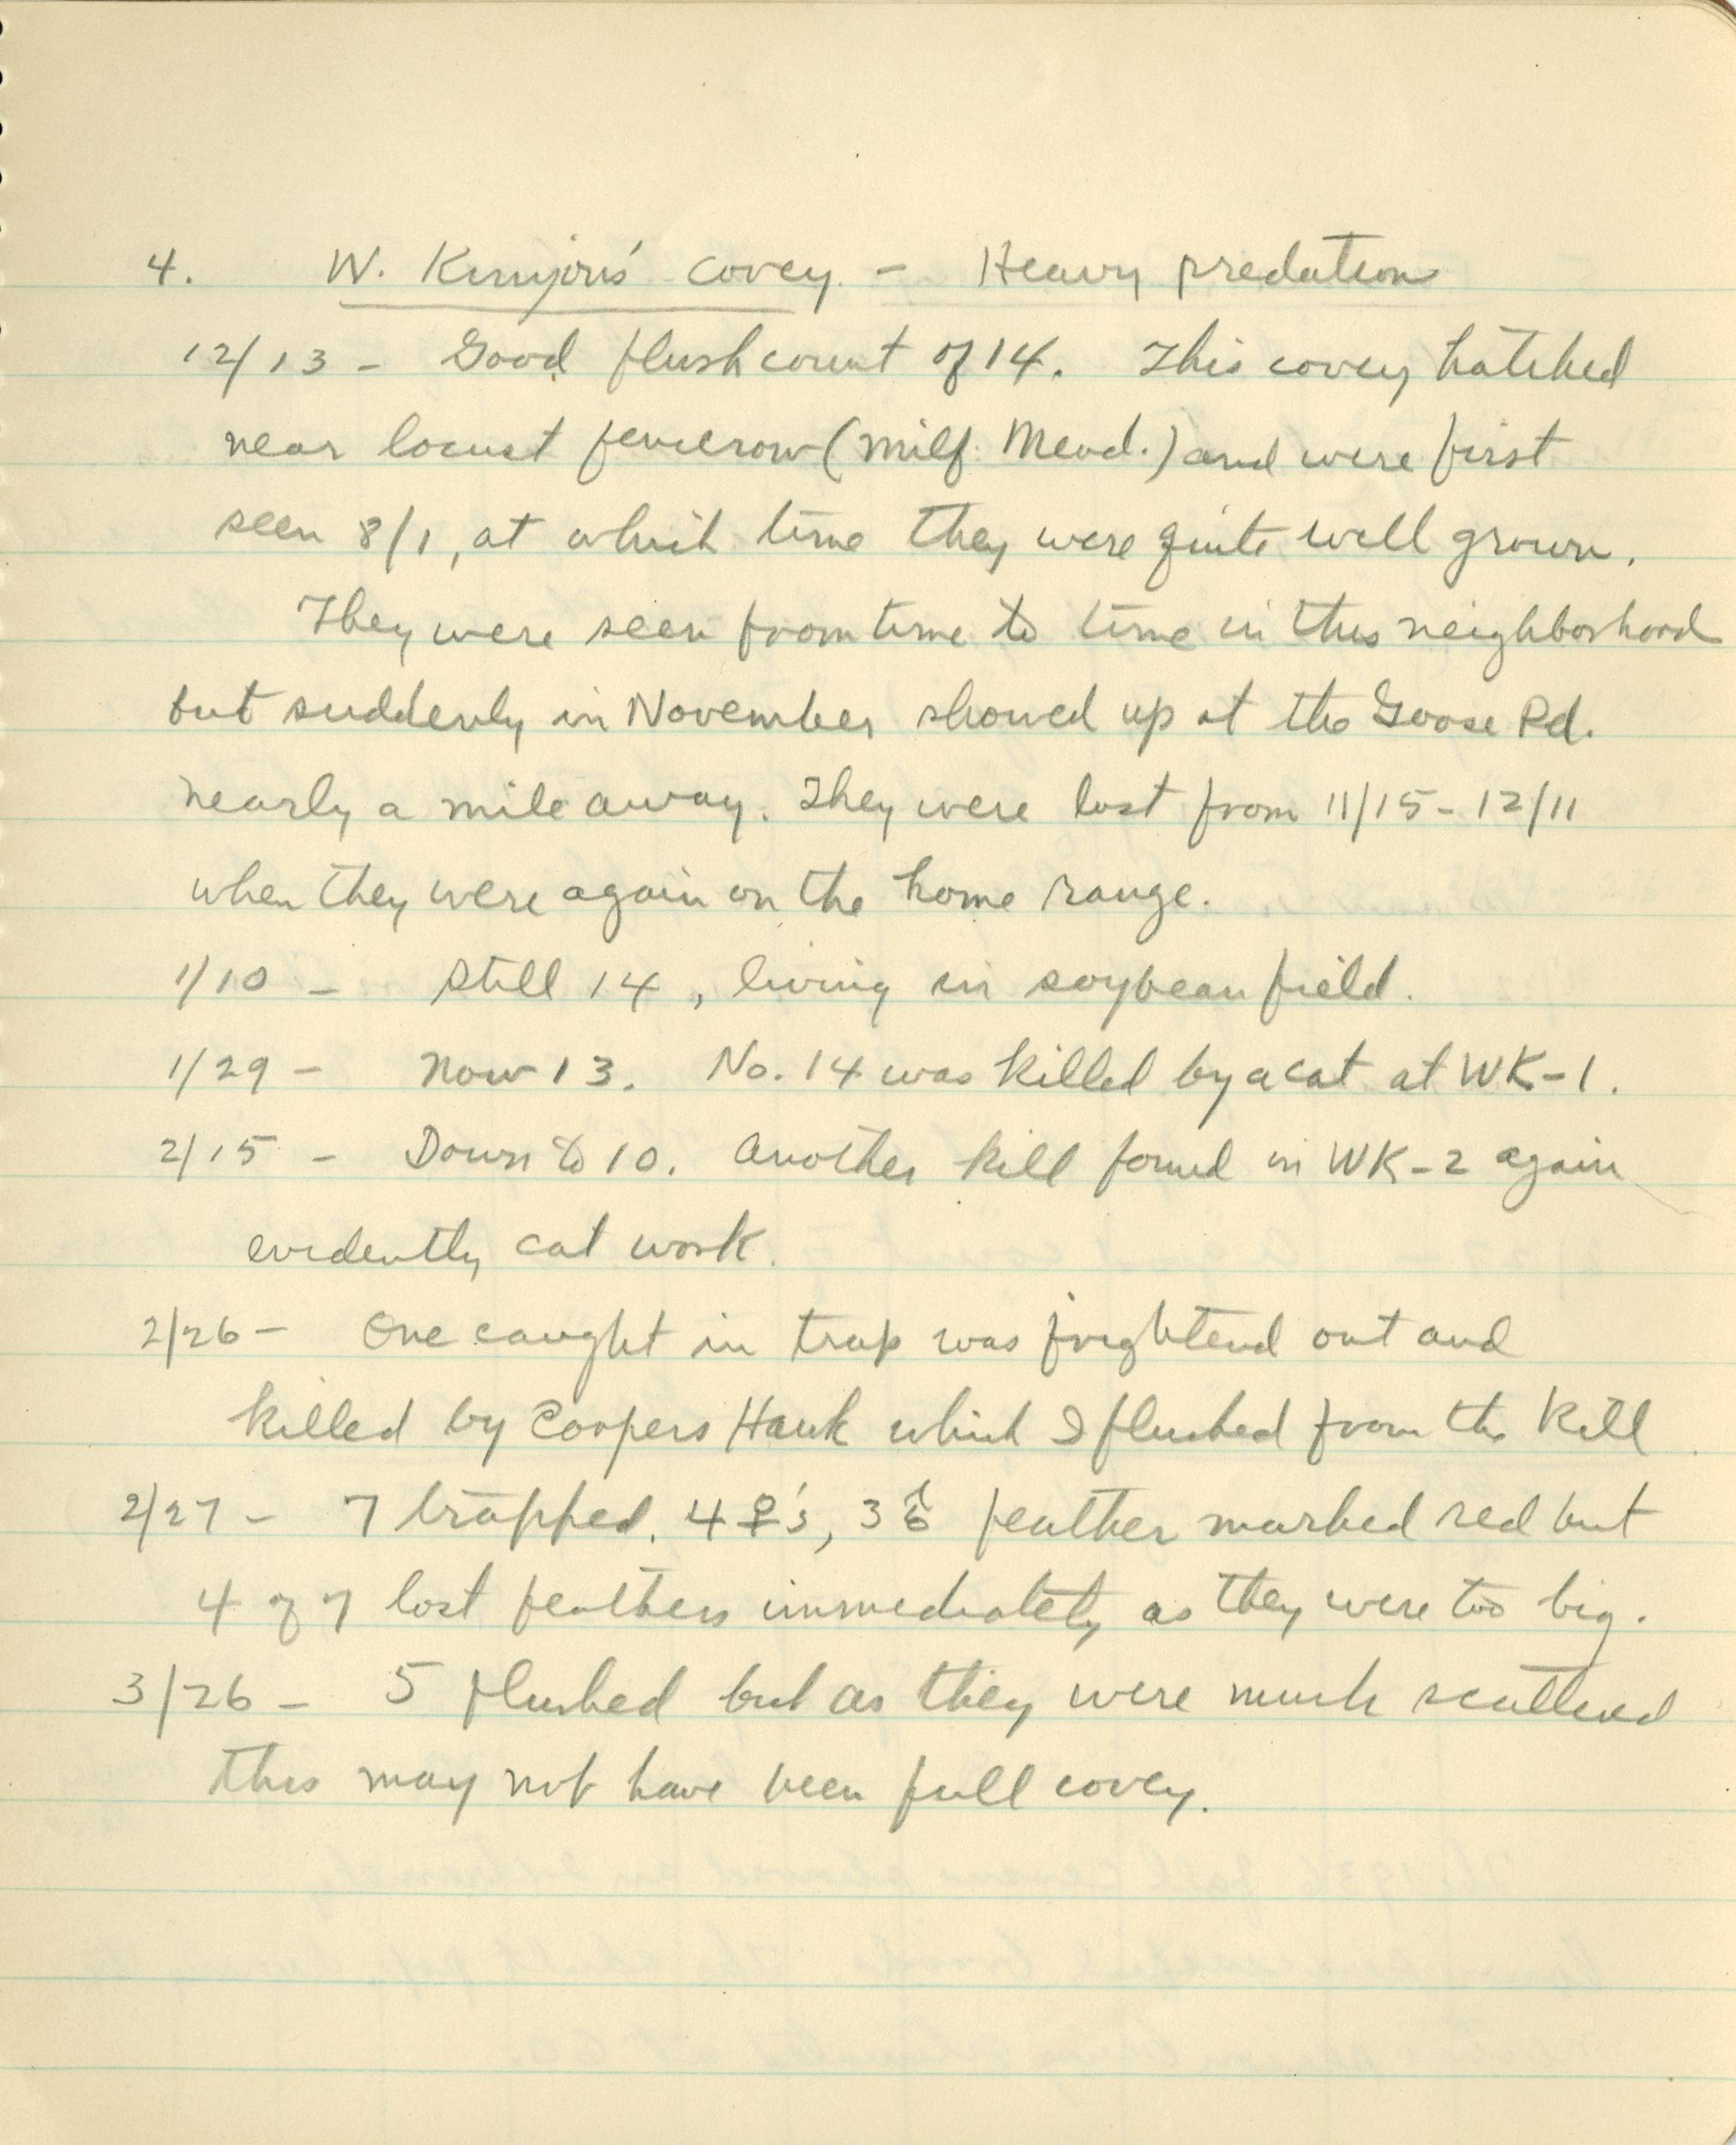 4. W. Kinyon's covey - Heavy predation
12/13 - Good flush count of 14. This covey hatched
near locust fencerow (Milf. Mead.) and were first
seen 8/1, at which time they were quite well grown.
They were seen from time to time in this neighborhood
but suddenly in November showed up at the Goose Pd.
nearly a mile away. They were lost from 11/15 - 12/11
when they were again on the home range.
1/10 - Still 14, living in soybean field.
1/29 - Now 13. No. 14 was killed by a cat at WK-1.
2/15 - Down to 10. Another kill found in WK-2 again
evidently cat work.
2/26 - One caught in trap was frightend out and
killed by Coopers Hawk which I flushed from the kill
2/27 - 7 trapped. 4 ♀'s, 3 ♂ feather marked red but
4 of 7 lost feathers immediately as they were too big.
3/26 - 5 flushed but as they were much scattered
this may not have been full covey.